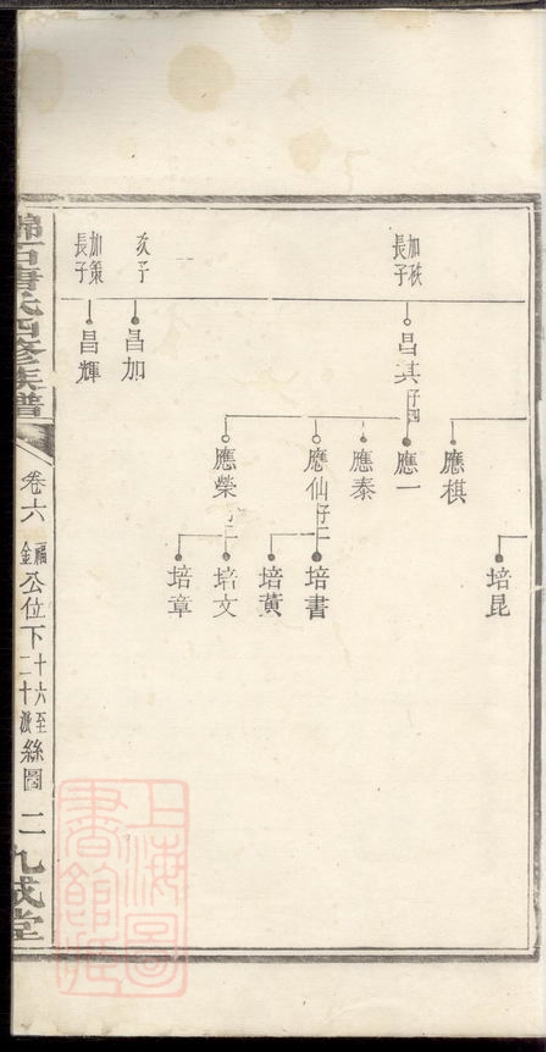 加秩長子
昌其 仔四
應棋
應一
應泰
應仙 仔二
應榮
培昆
培書
培蕢
培文
培章
次子
昌加
加策長子
昌輝
錦石唐氏四修族譜
卷六
福金公位下十六至二十派絲圖
二
九成堂
上海圖書館藏